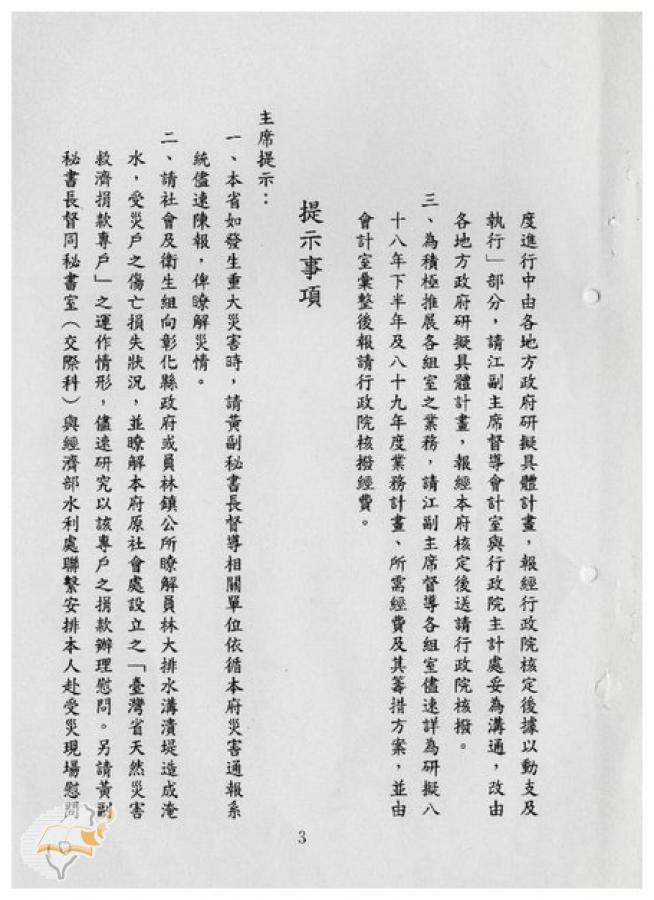 度進行中由各地方政府研擬具體計畫，報經行政院核定後據以動支及
執行」部分，請江副主席督導會計室與行政院主計處妥為溝通，改由
各地方政府研擬具體計畫，報經本府核定後送請行政院核撥。
三、為積極推展各組室之業務，請江副主席督導各組室儘速詳為研擬八
十八年下半年及八十九年度業務計畫、所需經費及其籌措方案，並由
會計室彙整後報請行政院核撥經費。
提示事項
主席提示：
一、本省如發生重大災害時，請黃副秘書長督導相關單位依循本府災害通報系
統儘速陳報，俾瞭解災情。
二、請社會及衛生組向彰化縣政府或員林鎮公所瞭解員林大排水溝潰堤造成淹
水，受災戶之傷亡損失狀況，並瞭解本府原社會處設立之「臺灣省天然災害
救濟捐款專戶」之運作情形，儘速研究以該專戶之捐款辦理慰問。另請黃副
秘書長督同秘書室（交際科）與經濟部水利處聯繫安排本人赴受災現場慰問
3